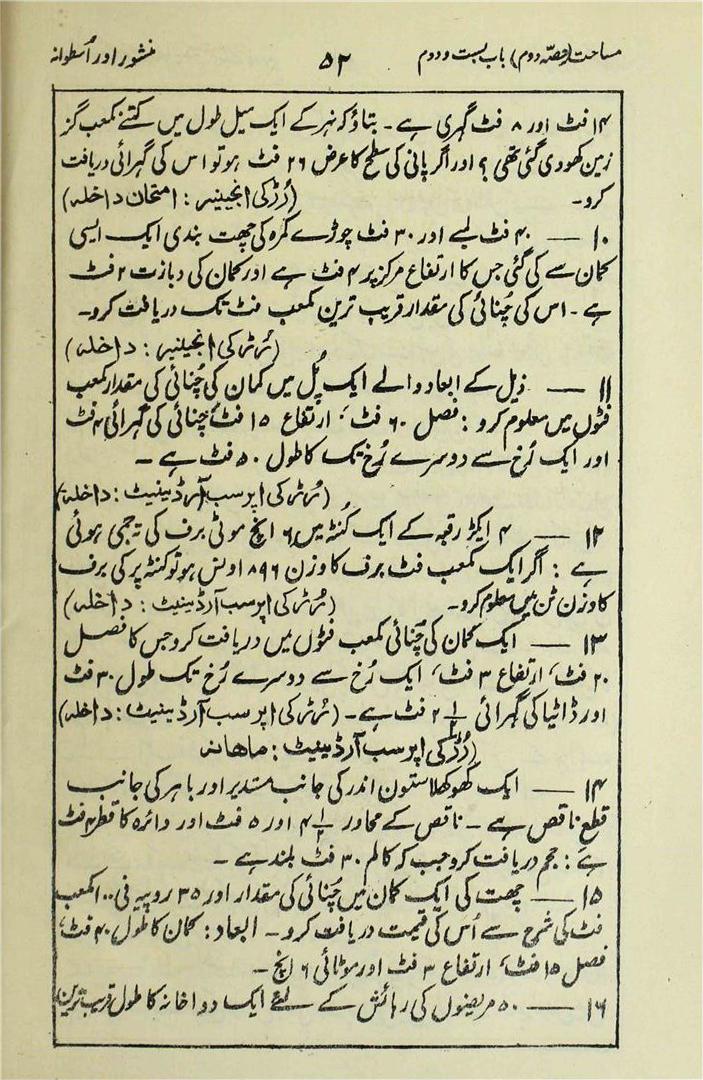 مساحت (حصّہ دوم) باب بست و دوم ۵۲ منشور اور اُسطوانہ
۱۴ فٹ اور ۸ فٹ گہری ہے۔ بتاؤ کہ نہر کے ایک میل طول میں کتنے مکعب گز
زمین کھودی گئی تھی؟ اور اگر پانی کی سطح کا عرض ۲۶ فٹ ہو تو اس کی گہرائی دریافت
کرو۔ (رُڑکی انجینیر : امتحان داخلہ)
۱۰ — ۴۰ فٹ لمبے اور ۳۰ فٹ چوڑے کمرہ کی چھت بندی ایک ایسی
کمان سے کی گئی جس کا ارتفاع مرکز پر ۴ فٹ ہے اور کمان کی دبازت ۲ فٹ
ہے۔ اس کی چُنائی کی مقدار قریب ترین مکعب فٹ تک دریافت کرو۔
(رُڑکی انجینیر : داخلہ)
۱۱ — ذیل کے ابعاد والے ایک پُل میں کمان کی چُنائی کی مقدار مکعب
فٹوں میں معلوم کرو : فصل ۶۰ فٹ، ارتفاع ۱۵ فٹ، چنائی کی گہرائی ۴ فٹ
اور ایک رُخ سے دوسرے رُخ تک کا طول ۵۰ فٹ ہے۔
(رُڑکی اپرسب آرڈینیٹ : داخلہ)
۱۲ — ۴ ایکڑ رقبہ کے ایک کُنٹہ میں ۶ انچ موٹی برف کی تہ جمی ہوئی
ہے : اگر ایک مکعب فٹ برف کا وزن ۸۹۶ اونس ہو تو کنٹہ پر کی برف
کا وزن ٹن میں معلوم کرو۔ (رُڑکی اپرسب آرڈینیٹ : داخلہ)
۱۳ — ایک کمان کی چُنائی مکعب فٹوں میں دریافت کرو جس کا فصل
۲۰ فٹ، ارتفاع ۳ فٹ، ایک رُخ سے دوسرے رُخ تک طول ۳۰ فٹ
اور ڈاٹیا کی گہرائی ۲ ½ فٹ ہے۔ (رُڑکی اپرسب آرڈینیٹ : داخلہ)
(رُڑکی اپرسب آرڈینیٹ : ماہانہ
۱۴ — ایک کھوکھلا ستون اندر کی جانب مستدیر اور باہر کی جانب
قطع ناقص ہے۔ ناقص کے محاور ۴ ½ اور ۵ فٹ اور دائرہ کا قطر ۴ فٹ
ہے : حجم دریافت کرو جب کہ کالم ۳۰ فٹ بلند ہے۔
۱۵ — چھت کی ایک کمان میں چُنائی کی مقدار اور ۳۵ روپیہ فی ۱۰۰ مکعب
فٹ کی شرح سے اُس کی قیمت دریافت کرو۔ ابعاد : کمان کا طول ۴۰ فٹ،
فصل ۱۵ فٹ، ارتفاع ۳ فٹ اور موٹائی ۶ انچ۔
۱۶ — ۵۰ مریضوں کی رہائش کے لئے ایک دواخانہ کا طول قریب ترین